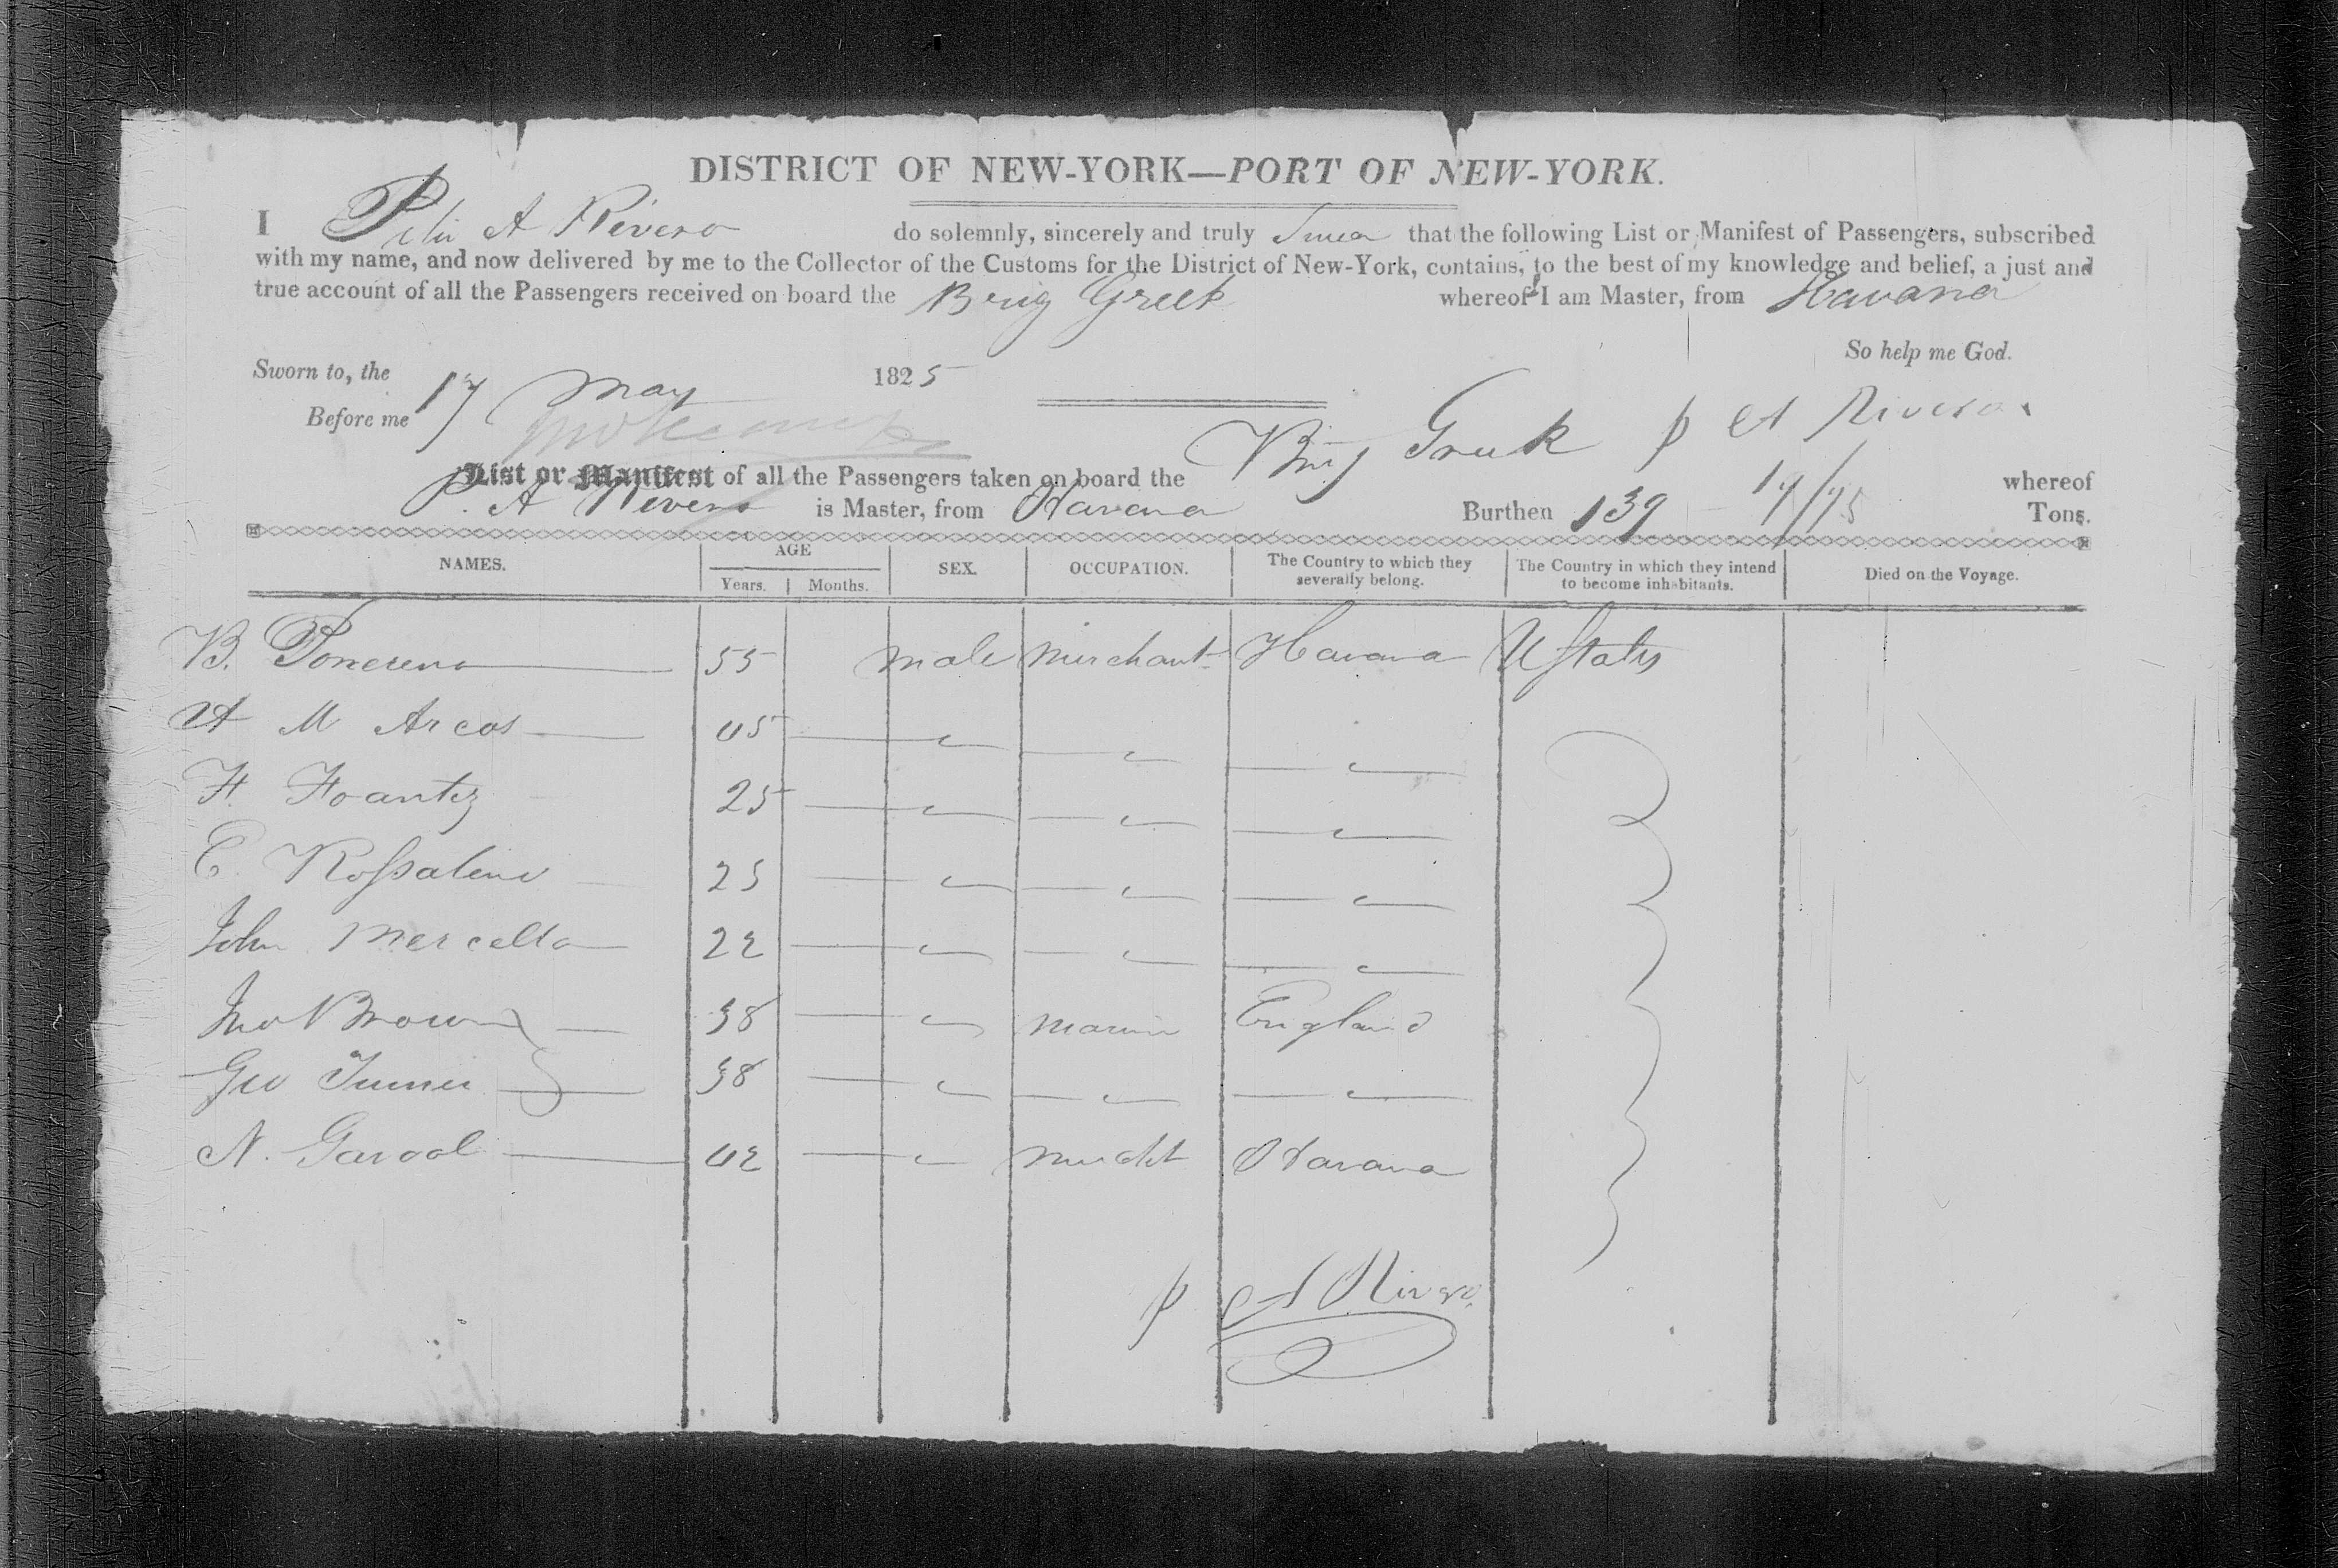 DISTRICT OF NEW-YORK—PORT OF NEW-YORK.
I A Rivero do solemnly, sincerely and truly Swear that the following List or Manifest of Passengers, subscribed
with my name, and now delivered by me to the Collector of the Customs for the District of New-York, contains, to the best of my knowledge and belief, a just and
true account of all the Passengers received on board the Brig Greek whereof I am Master, from Havana
So help me God.
Sworn to, the 17 May 1825
Before me
P A Rivero
List or Manifest of all the Passengers taken on board the Brig Greek whereof
P. A Rivero is Master, from Havana Burthen 139 Tons.
NAMES. AGE Years. Months. SEX. OCCUPATION. The Country to which they severally belong. The Country in which they intend to become inhabitants. Died on the Voyage.
B. 55 male merchant Havana U States
A M Arcos 45
F. 25
C. 25
John Mercella 22
Jno Brown 38 England
Geo Turner 38
N. 42 Havana
P A Rivero